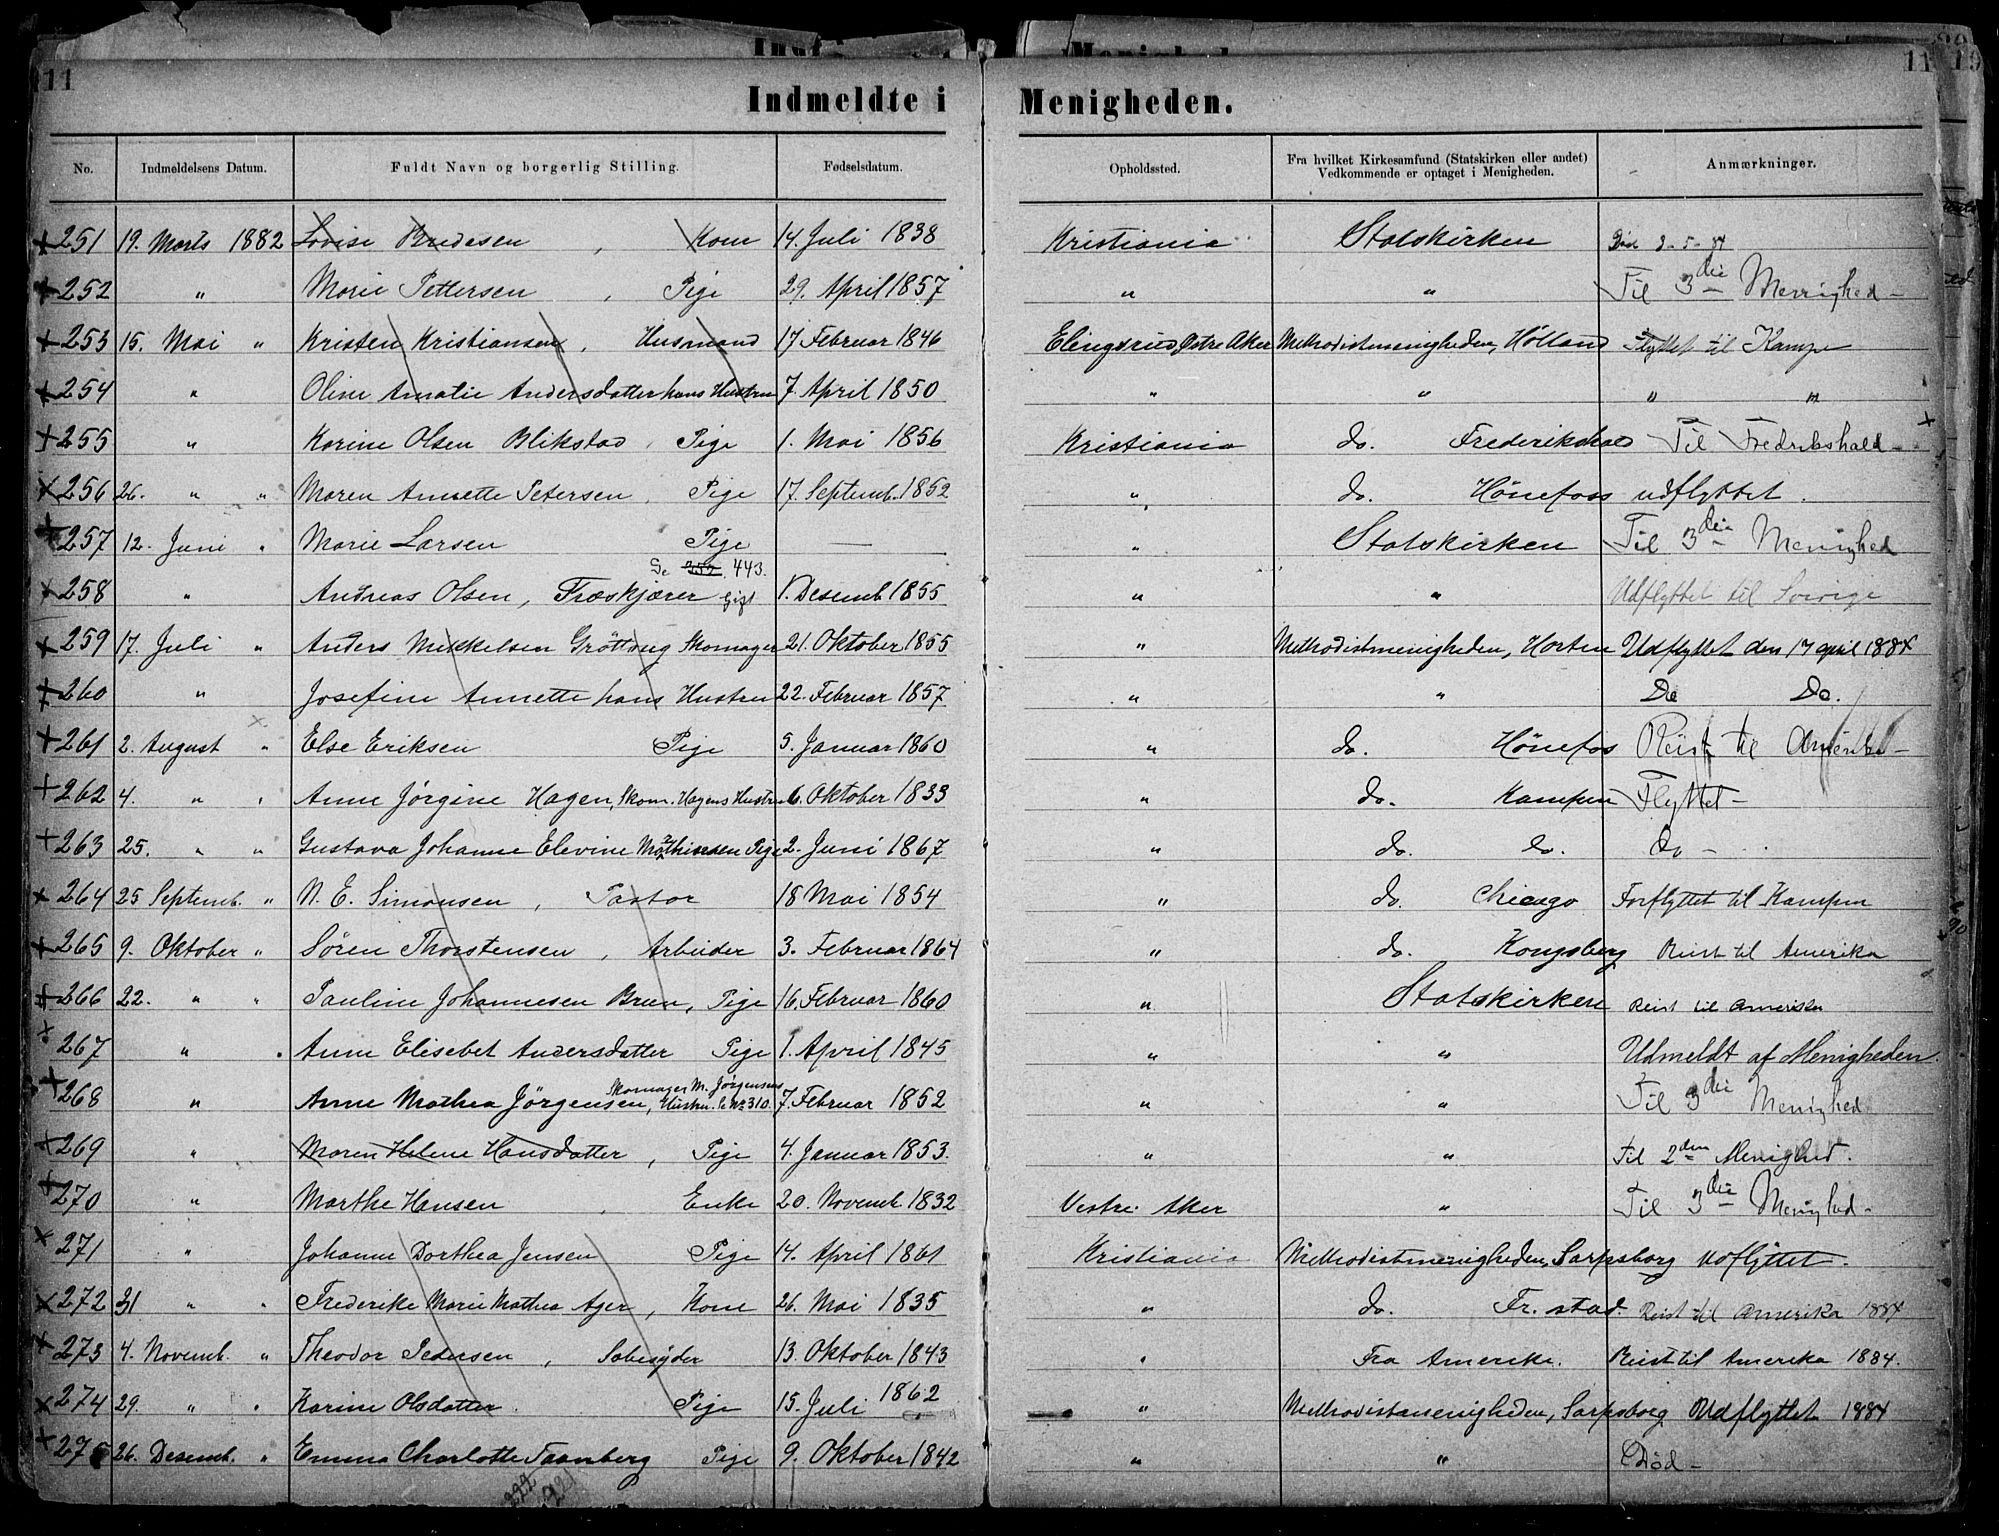 11 11
Indmeldte i Menigheden.
No. Indmeldelsens Datum. Fuldt Navn og borgerlig Stilling. Fødselsdatum. Opholdssted. Fra hvilket Kirkesamfund (Statskirken eller andet) Vedkommende er optaget i Menigheden. Anmærkninger.
+ 251 19. Marts 1882 Lovise Bredesen , Kone 14. Juli 1838 Kristiania Statskirken Død 2-5-84
+ 252 " Marie Pettersen , Pige 29. April 1857 " " Til 3die Menighed-
+ 253 15. Mai " Kristen Kristiansen, Husmand 17 Februar 1846 Elingsrud, Østre Aker Methodistmenigheden, Høland Flyttet til Kampe
+ 254 " Oline Amalie Andersdatter hans Hustru 7. April 1850 " " " "
+ 255 " Karine Olsen Blikstad, Pige 1. Mai 1856 Kristiania do. Frederikshald Til Fredrikshald-
x 256 26. " " Maren Annette Petersen, Pige 17. Septemb. 1852 " do. Hönefoss udflyttet.
+ 257 12. Juni " Marie Larsen Pige — " Statskirken Til 3die Menighed
Se 252. 443.
x 258 " Andreas Olsen, Træskjærer Gift 1. Desemb. 1855 " " Udflyttet til Sverige
+ 259 17. Juli " Anders Mikkelsen Gröttong Skomager 21. Oktober 1855 " Methodistmenigheden, Horten Udflyttet den 17 april 1884
+ 260 " Josefine Annette hans Hustru 22. Februar 1857 " " Do Do.
+ 261 2. August " Else Eriksen Pige 5. Januar 1860 " do. Hönefos Reist til Amerika-
+ 262 4. " " Anne Jörgine Hagen, Skom. Hagens Hustru 6. Oktober 1833 " do. Kampen Flyttet-
+ 263 25. " " Gustava Johanne Elevine Mathisen Pige 2. Juni 1867 " do. do. do-
x 264 25 Septemb. " N. E. Simonsen, Pastor 18 Mai 1854 " do. Chicago Forflyttet til Kampen
+ 265 9. Oktober " Sören Thorstensen, Arbeider 3. Februar 1864 " do. Kongsberg Reist til Amerika
+ 266 22. " " Pauline Johannesen Bruen, Pige 16. Februar 1860 " Statskirken Reist til Amerika
+ 267 " Anne Elisebet Andersdatter Pige 1. April 1845 " " Udmeldt af Menigheden.
Skomager M. Jörgensens
+ 268 " Anne Mathea Jörgensen, Hustru. Se No 310. 7. Februar 1852 " " Til 3die Menighed
x 269 " Maren Helene Hansdatter, Pige 4. Januar 1853. " " Til 2den Menighed.
+ 270 " Marthe Hansen , Enke 20. Novemb. 1832 Vestre Aker " Til 3die Menighed-
x 271 " Johanne Dorthea Jensen Pige 14. April 1861 Kristiania Methodistmenigheden, Sarpsborg Udflyttet.
x 272 31 " " Frederike Marie Mathea Ager, Kone 26. Mai 1835 " do. Fr. stad. Reist til Amerika 1884
x 273 4. Novemb. " Theodor Pedersen, Sæbesyder 13. Oktober 1843 " Fra Amerika. Reist til Amerika 1884.
x 274 29. " " Karine Olsdatter. Pige 15. Juli 1862 " Methodistmenigheden, Sarpsborg Udflyttet 1884
x 275 26. Desemb. " Emma Charlotte Saanberg Pige 9. Oktober 1842 " " Död-
222
221